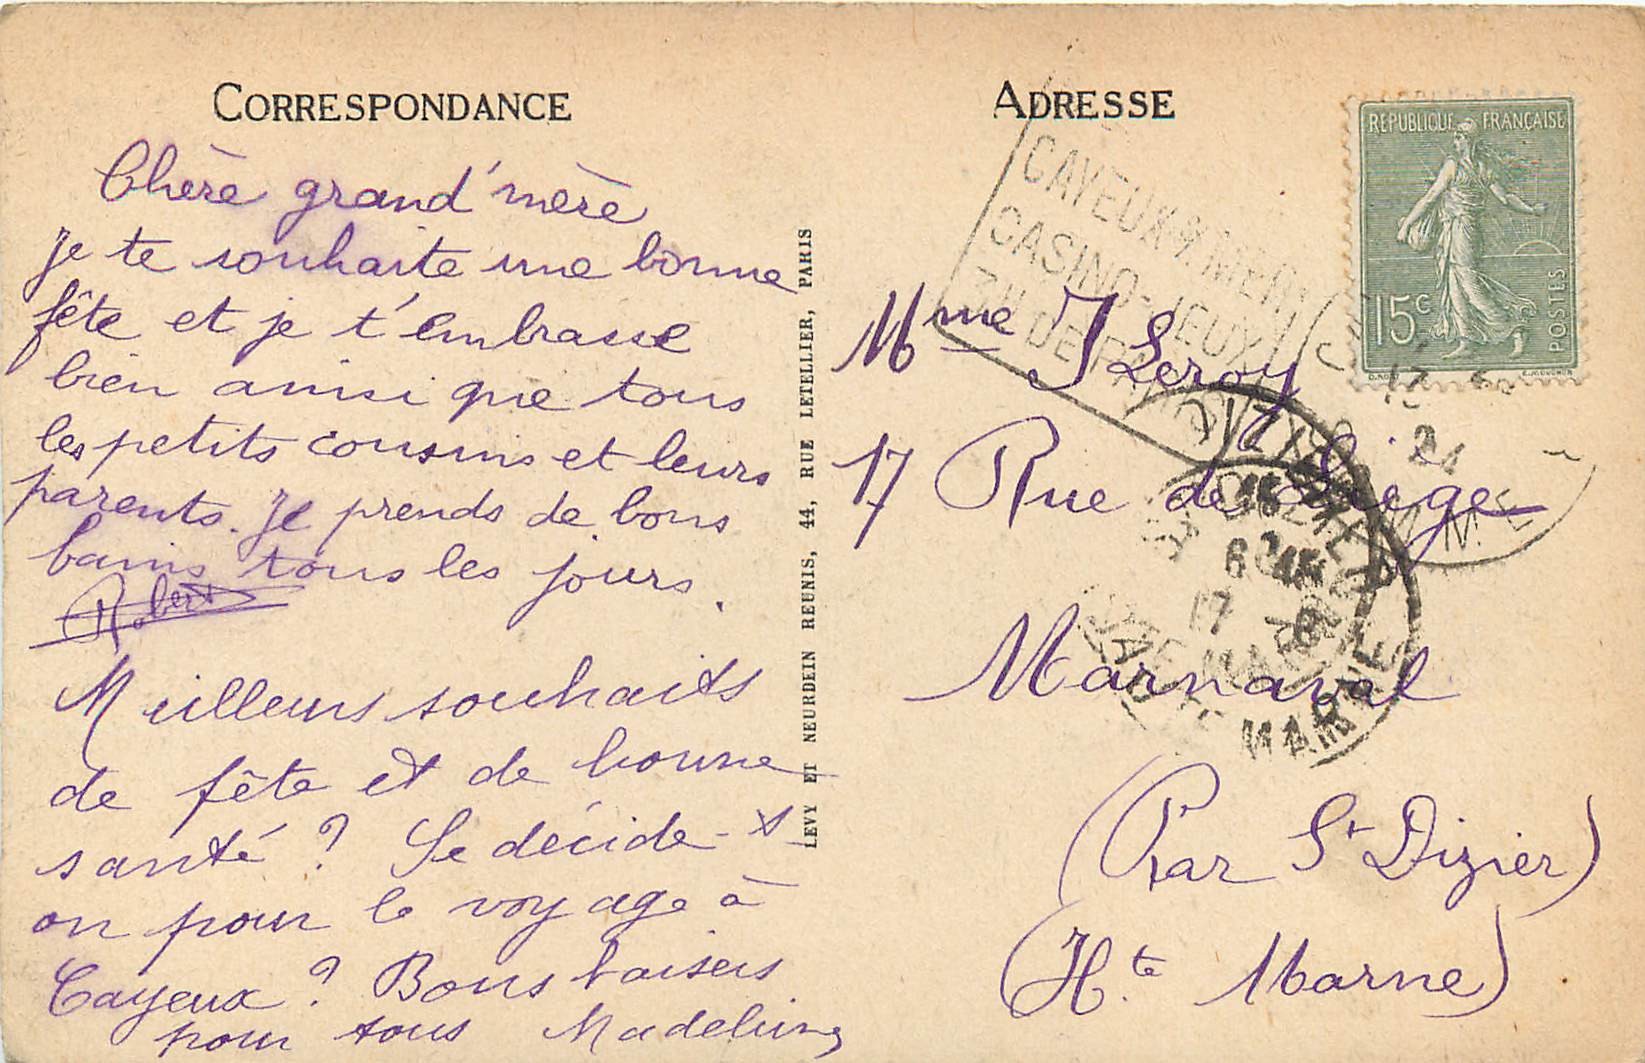 CORRESPONDANCE
Chère grand'mère
je te souhaite une bonne
fête et je t'embrasse
bien ainsi que tous
les petits cousins et leurs
parents. Je prends de bons
bains tous les jours.
Robert
Meilleurs souhaits
de fête et de bonne
santé ? Se décide-t-
on pour le voyage à
Cayeux ? Bons baisers
pour tous Madeleine
LEVY ET NEURDEIN REUNIS, 44, RUE LETELLIER, PARIS
ADRESSE
REPUBLIQUE FRANÇAISE
15c
POSTES
CAYEUX S/ MER
CASINO-JEUX
DE
24
Mme J Leroy
17 Rue de Liège
Marnaval
(Par St Dizier)
(Hte Marne)
ST DIZIER
17
MARNE